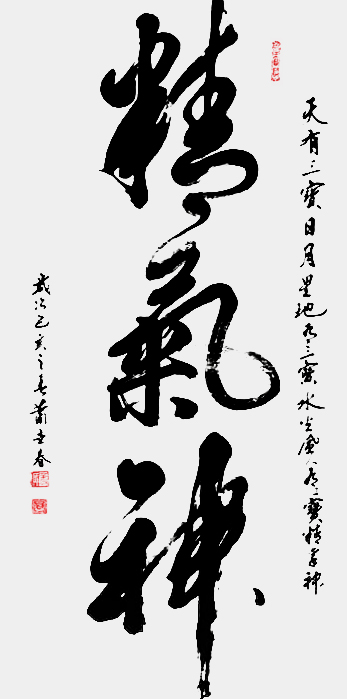 天有三寶日月星地有三寶水火風人有三寶精氣神
精氣神
歲次己亥之春蕭春